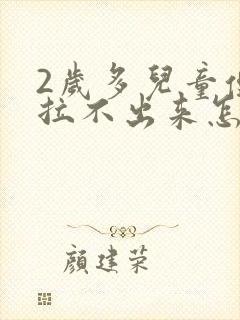 2歲多兒童便
拉不出来怎
顏建荣